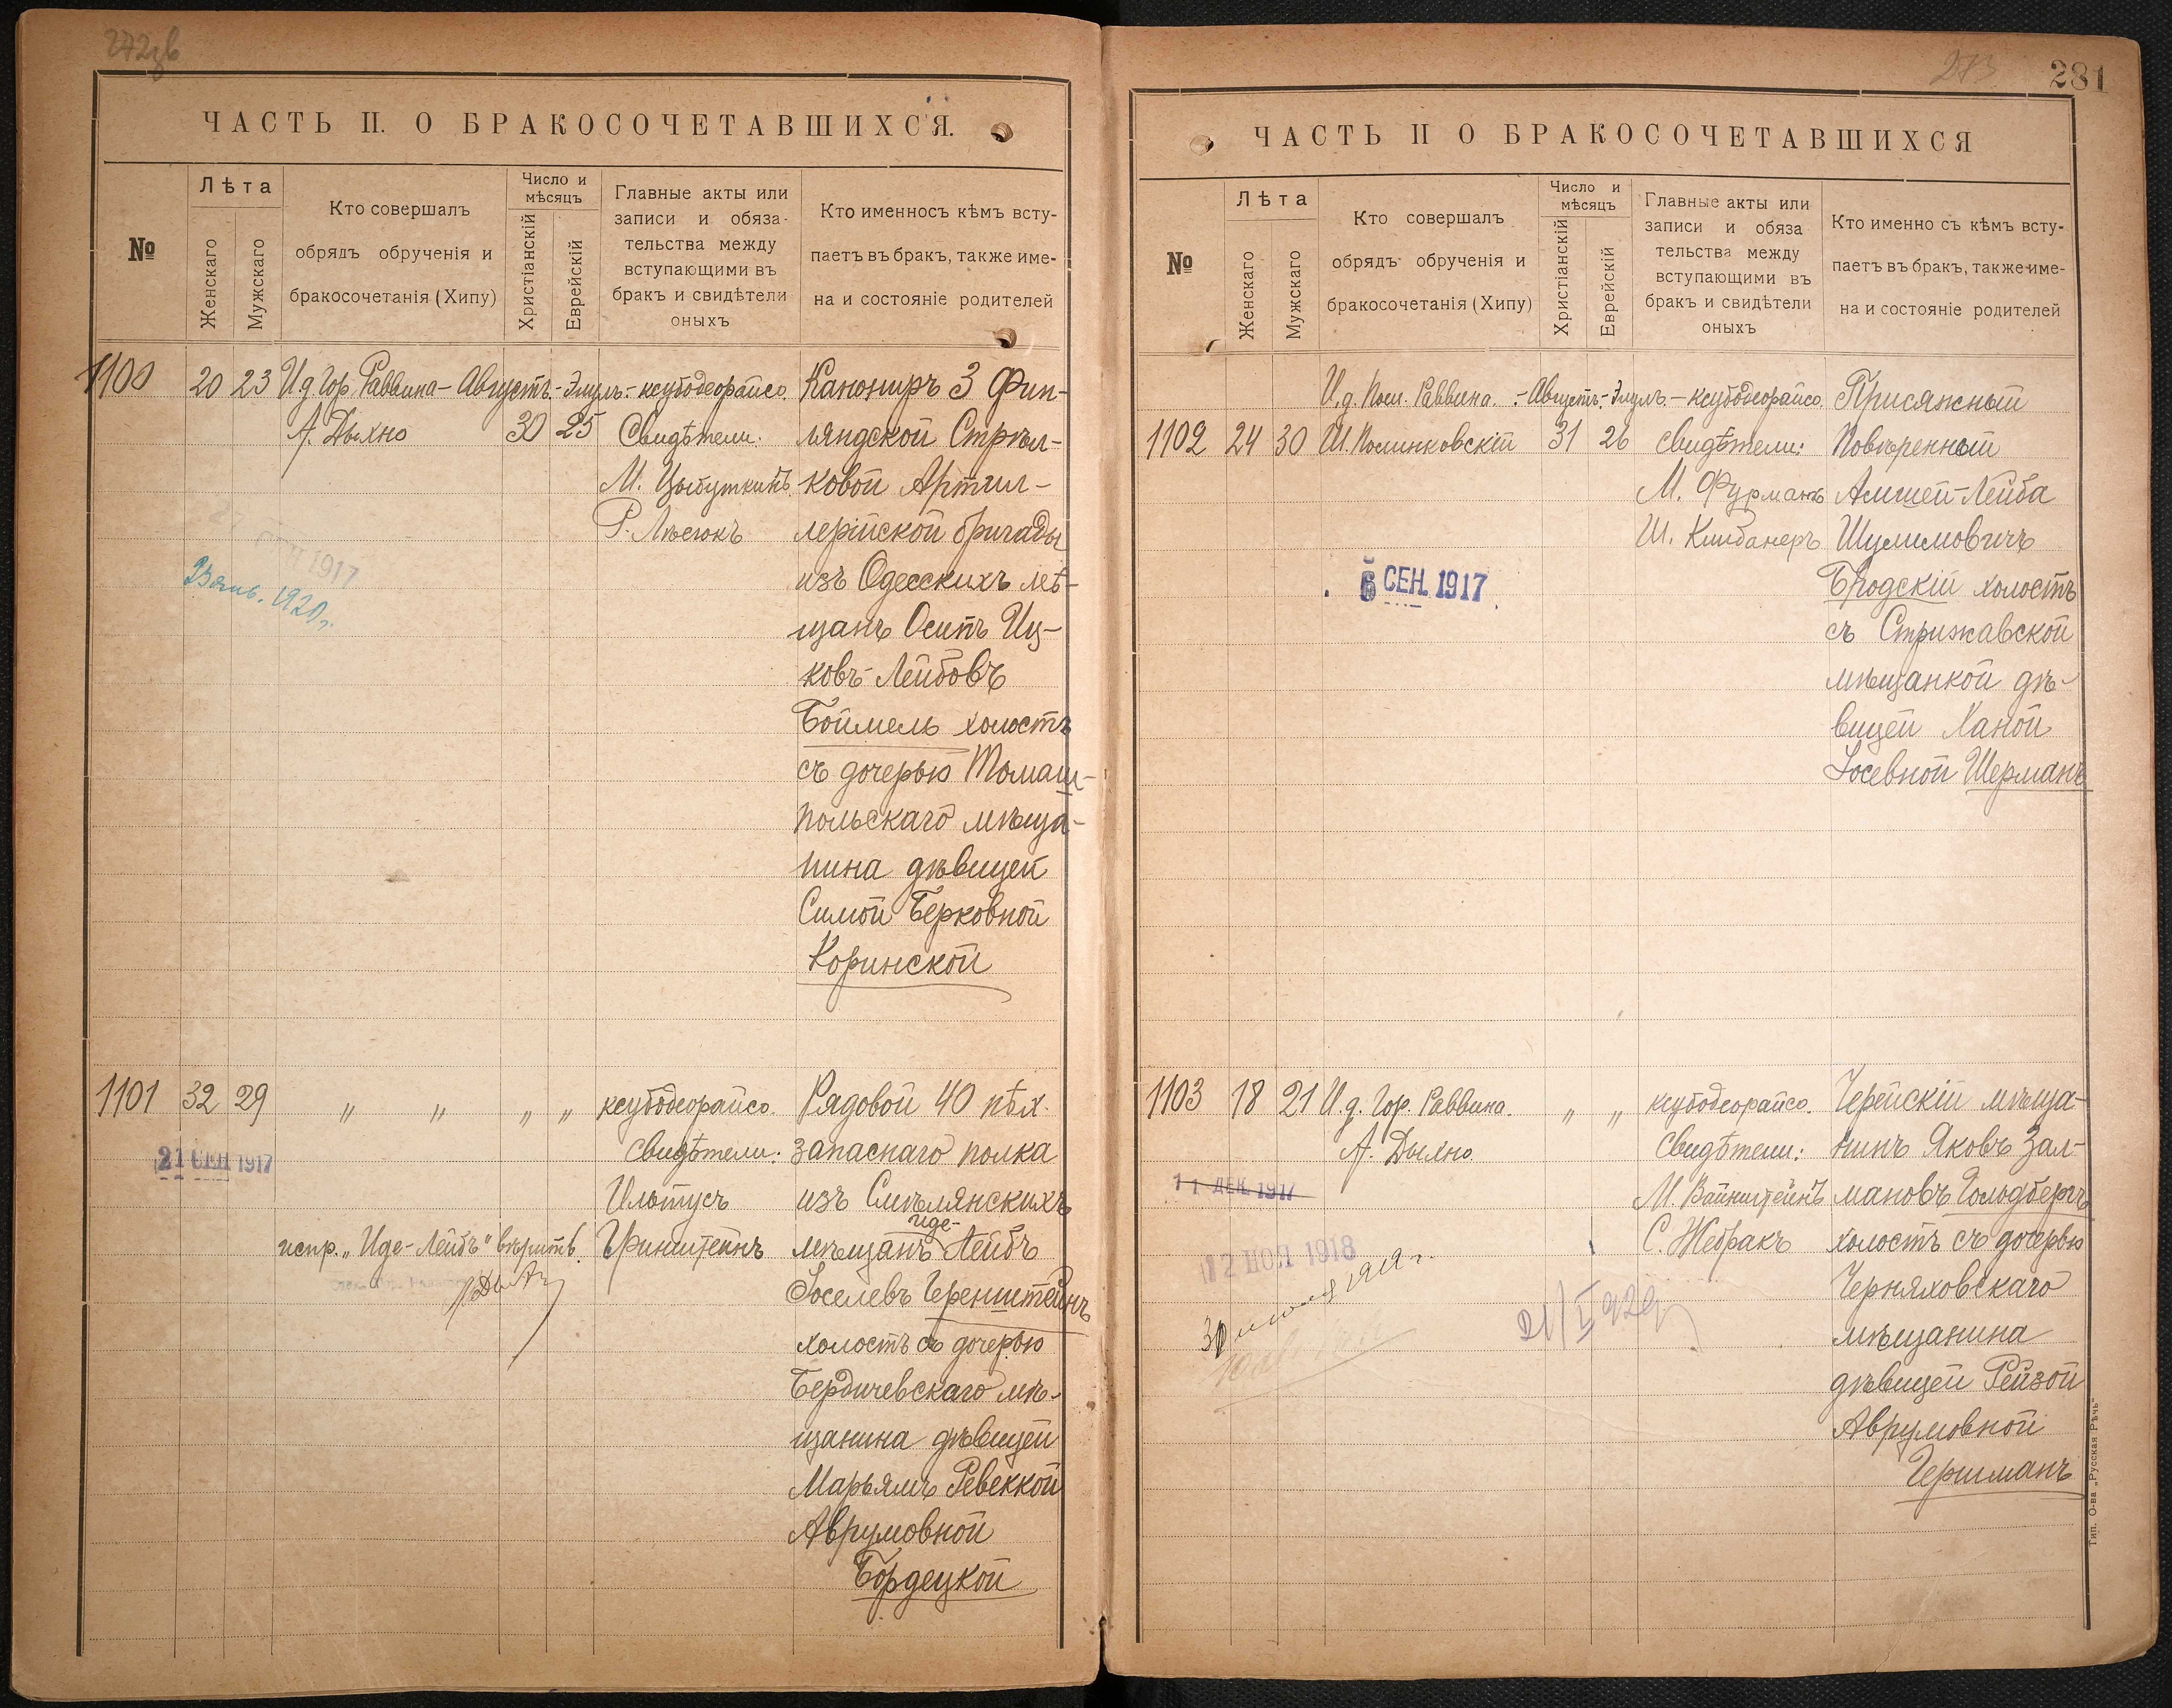 272зв
ЧАСТЬ II. О БРАКОСОЧЕТАВШИХСЯ.
№
Лѣта
Женскаго
Мужскаго
Кто совершалъ
обрядъ обрученія и
бракосочетанія (Хипу)
Число и
мѣсяцъ
Христіанскій
Еврейскій
Главные акты или
записи и обяза-
тельства между
вступающими въ
бракъ и свидѣтели
оныхъ
Кто именносъ кѣмъ всту-
паетъ въ бракъ, также име-
на и состояніе родителей
1100 20 23 И д Гор. Раввина - Августъ - Элулъ: - ксубодеорайсо. Канониръ 3 Фин-
А. Дыхно 30 25 Свидѣтели: ляндской Стрѣл-
М. Цыбуткинъ ковой Артил-
Р. Лѣсюкъ лерійской бригады
СЕН 1917
изъ Одесскихъ мѣ-
1920 г.
щанъ Осипъ Иц-
ковъ-Лейбовъ
Боймель холостъ
съ дочерью Томаш-
польскаго мѣща-
нина дѣвицей
Симой Берковной
Коринской
1101 32 29 " " " " ксубодеорайсо. Рядовой 40 пѣх.
свидѣтели: запаснаго полка
21 СЕН 1917
изъ Смѣлянскихъ
Иде-
испр. „Иде-Лейбъ" вѣрить. Гринштейнъ мѣщанъ Лейбъ
Іоселевъ Геренштейнъ
холостъ съ дочерью
Бердичевскаго мѣ-
щанина дѣвицей
Марьямъ Ревеккой
Аврумовной
Бордецкой
273 281
ЧАСТЬ II О БРАКОСОЧЕТАВШИХСЯ
№
Лѣта
Женскаго
Мужскаго
Кто совершалъ
обрядъ обрученія и
бракосочетанія (Хипу)
Число и
мѣсяцъ
Христіанскій
Еврейскій
Главные акты или
записи и обяза
тельства между
вступающими въ
бракъ и свидѣтели
оныхъ
Кто именно съ кѣмъ всту-
паетъ въ бракъ, также име-
на и состояніе родителей
И.д. Пом. Раввина. - Августъ - Элулъ. - ксубодеорайсо. Присяжный
1102 24 30 Ш. Полинковскій 31 26 свидѣтели: Повѣренный
М. Фурманъ Амшей-Лейба
Ш. Клибанеръ Шулимовичъ
6 СЕН. 1917
Бродскій холостъ
съ Стрижавской
мѣщанкой дѣ-
вицей Ханой
Іосевной Шерманъ
1103 18 21 И.д. Гор. Раввина. " " ксубодеорайсо. Черейскій мѣща-
А. Дыхно. Свидѣтели: нинъ Яковъ Зал-
11 ДЕК 1917
М. Вайнштейнъ мановъ Голодбергъ
12 НОЯ 1918
С. Жебракъ холостъ съ дочерью
Черняховскаго
мѣщанина
дѣвицей Рейзой
Аврумовной
Гершманъ
Тип. О-ва „Русская Рѣчь"